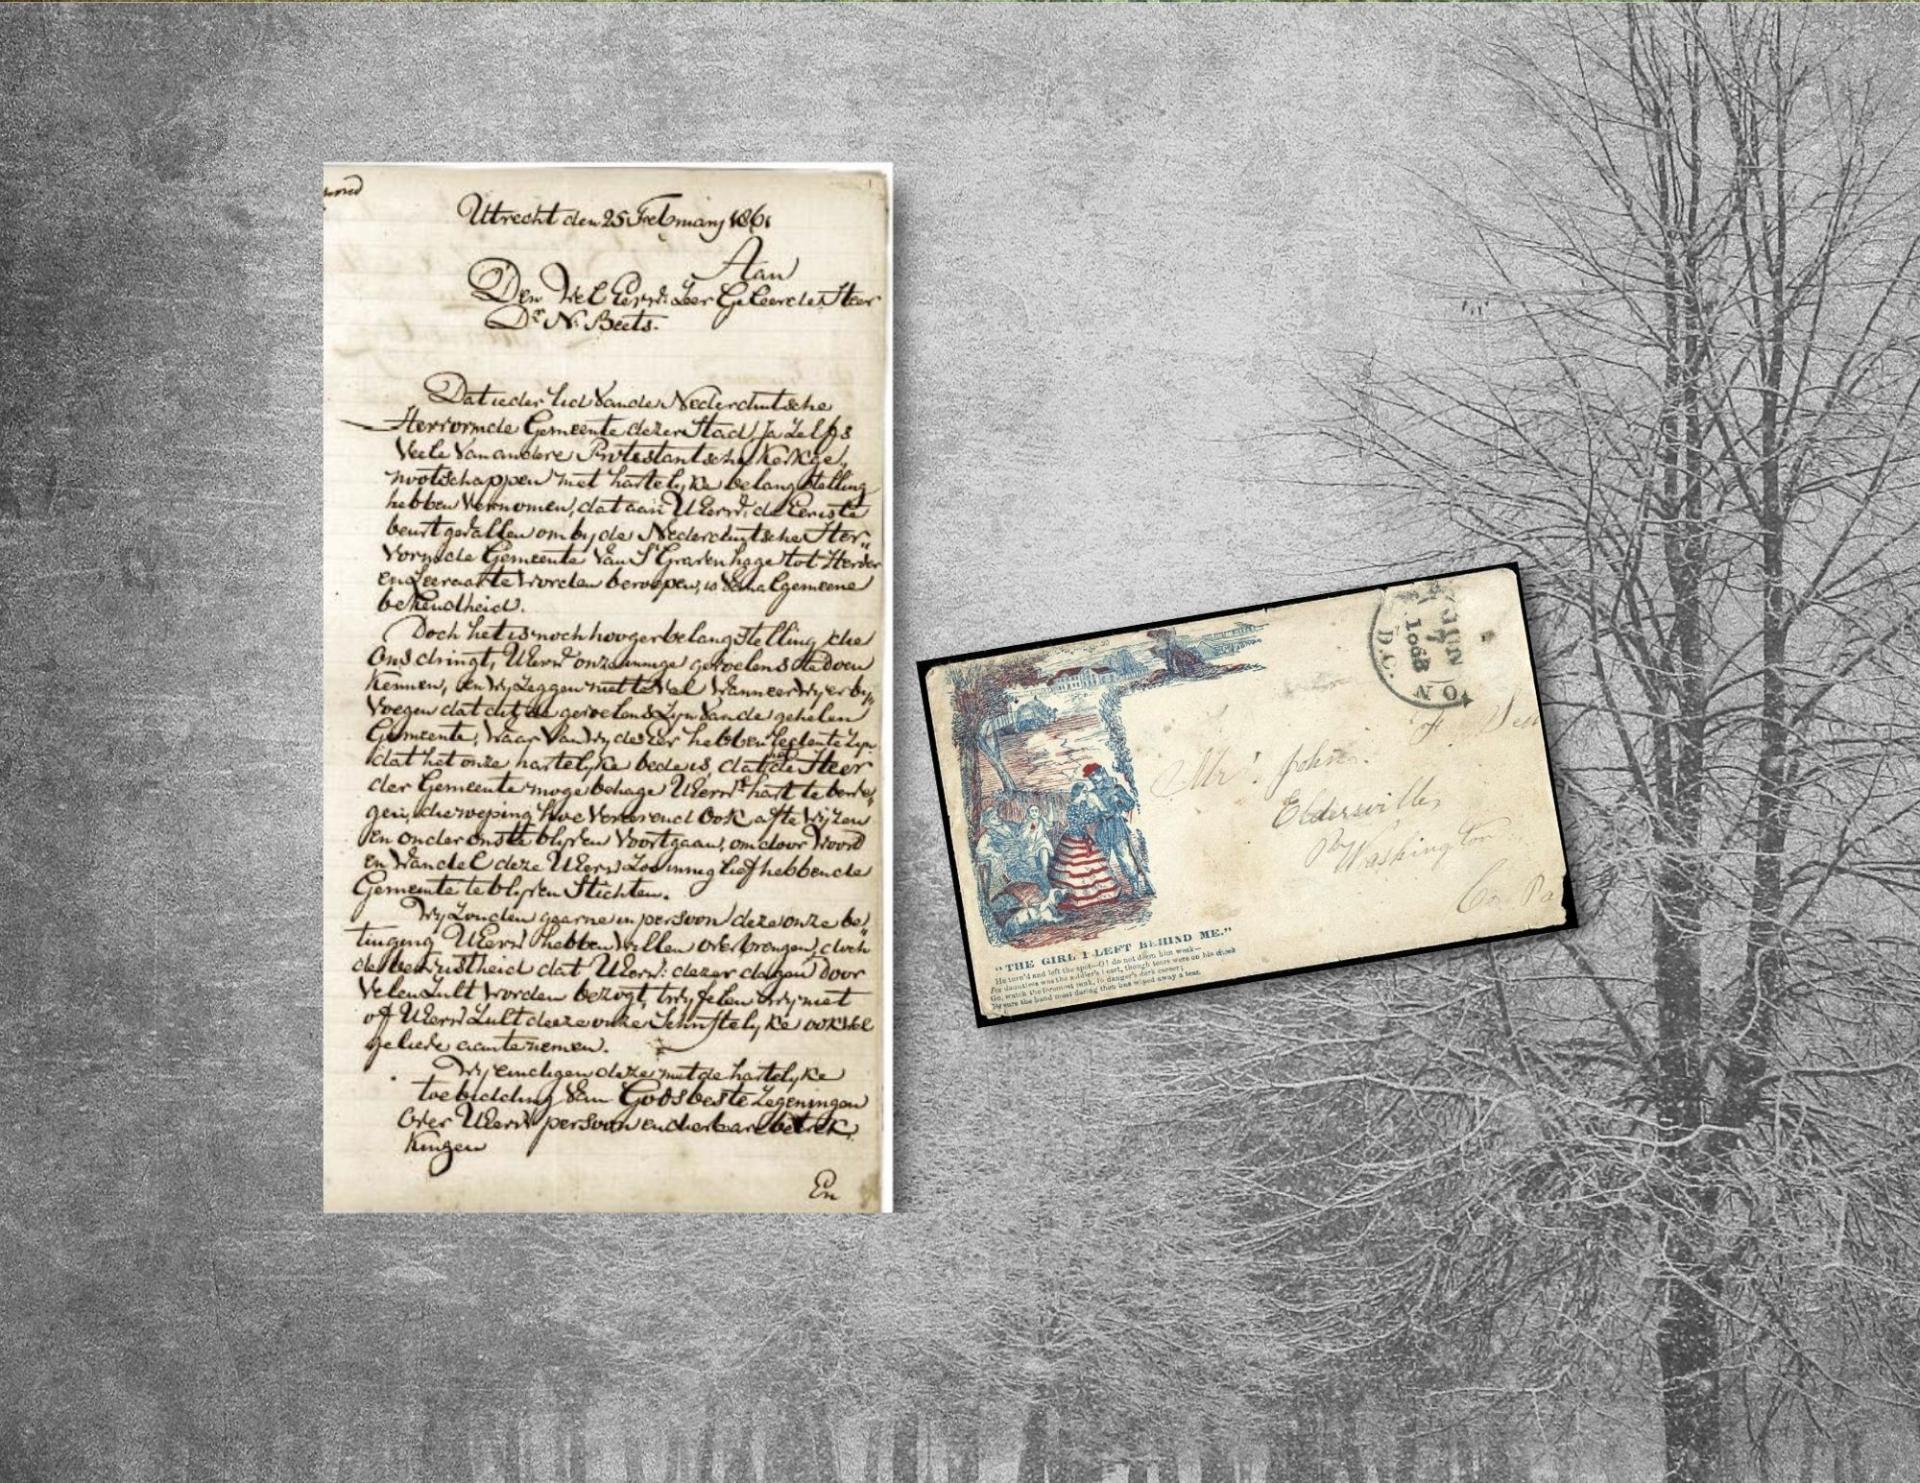 Utrecht den 25 Februarij 1861
Aan
Den Wel Eerw: Zeer Geleerden Heer
Dr. N. Beets.
Dat ieder lid van de Nederduitsche
Hervormde Gemeente dezer Stad, Ja Zelfs
Veele Van andere Protestantsche Kerkge„
nootschappen met hartelyke belangstelling
hebben Vernomen, dat aan UEerw: de Eerste
beurt gevallen om by de Nederduitsche Her„
vormde Gemeente Van S'Gravenhage tot Herder
en Leeraar te worden beroepen, is Van algemeene
bekendheid.
Doch het is noch hooger belangstelling die
Ons dringt, UEerw: onze innige gevoelens te doen
Kennen, en wy zeggen niet te Vel wanneer wy er by
Voegen dat dit de gevoelens zyn Van de gehelen
Gemeente, waar Van wy dezer hebben
dat het onze hartelyke bede is dat de Heer
der Gemeente moge behage UEerw: hart te bewe„
gen, die roeping hoe Vererend Ook af te wyzen
en onder ons te blyven Voortgaan, om door Woord
en Wandel deze UEerw: Zoo innig lief hebbende
Gemeente te blyven Stichten.
Wy Zouden gaarne in persoon deze onze be„
tuiging UEerw: hebben willen overbrengen, doch
de bewustheid dat UEerw: dezer dagen Door
Velen Zult worden bezogt, twyfelen wy niet
of UEerw: Zult deeze onze Schriftelyke ook wel
geliefe aan te nemen.
Wy eindigen deze met de hartelyke
toebidding Van Gods beste Zegeningen
Over UEerw: persoon en dierbare betrek„
kingen
En
JUN
7
1863
D.C.
Mr. John
Eldersville,
Washington
Co. Pa
"THE GIRL I LEFT BEHIND ME."
He turn'd and left the spot—O! do not deem him weak—
For dauntless was the soldier's heart, though tears were on his cheek
Go, watch the foremost rank, in danger's dark career;
Be sure the hand most daring there has wiped away a tear.